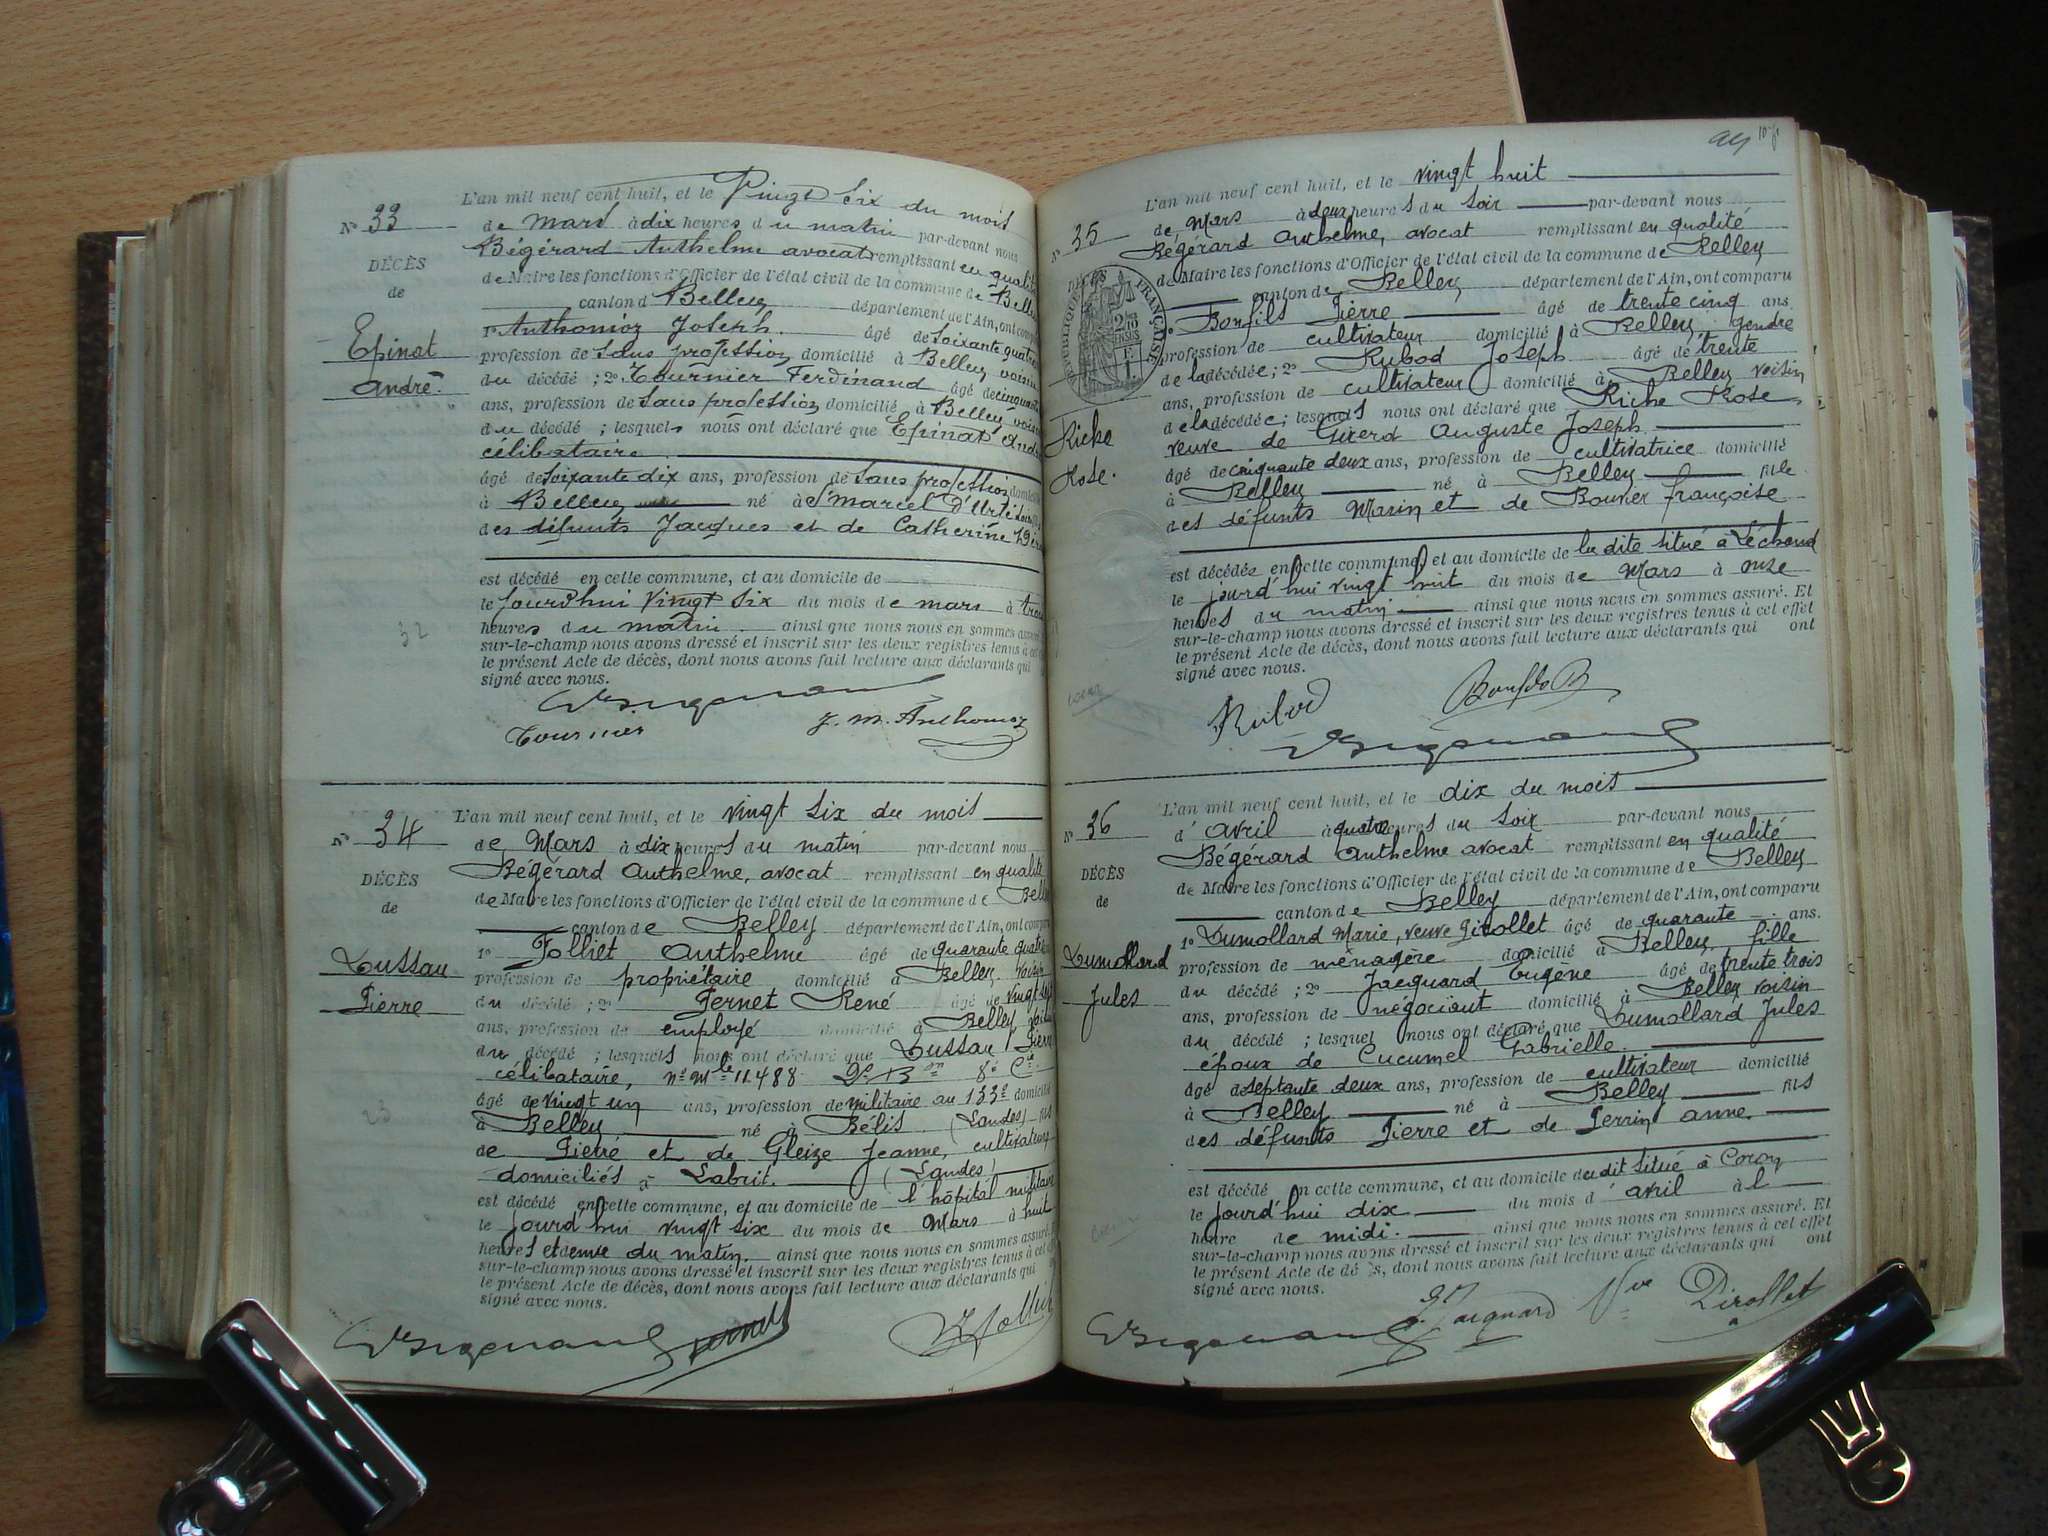 L'an mil neuf cent huit, et le Vingt six du mois
N° 33
de Mars à dix heures du matin par-devant nous
Bégérard Anthelme avocat remplissant en qualité
DÉCÈS
de Maire les fonctions d'Officier de l'état civil de la commune de Belley
de
canton d Belley département de l'Ain, ont comparu
1° Anthonioz Joseph âgé de soixante quatre
Epinat
profession de sans profession domicilié à Belley, voisin
André
du décédé ; 2° Tournier Ferdinand âgé de cinquante
ans, profession de sans profession domicilié à Belley, voisin
du décédé ; lesquels nous ont déclaré que Epinat André
célibataire
âgé de soixante dix ans, profession de sans profession domicilié
à Belley né à St Marcel d'Urfé
des défunts Jacques et de Catherine
est décédé en cette commune, et au domicile de
le jourd'hui vingt six du mois de mars à
heures du matin ainsi que nous nous en sommes assuré
32
sur-le-champ nous avons dressé et inscrit sur les deux registres tenus à cet
le présent Acte de décès, dont nous avons fait lecture aux déclarants qui
signé avec nous.
Tournier J. M. Anthonioz
L'an mil neuf cent huit, et le vingt six du mois
N° 34
de Mars à dix heures du matin par-devant nous
Bégérard Anthelme, avocat remplissant en qualité
DÉCÈS
de Maire les fonctions d'Officier de l'état civil de la commune de Belley
de
canton de Belley département de l'Ain, ont comparu
1° Folliet Anthelme âgé de quarante quatre
Dussau
profession de propriétaire domicilié à Belley, voisin
Pierre
du décédé ; 2° Pernet René âgé de vingt sept
ans, profession de employé domicilié à Belley, voisin
du décédé ; lesquels nous ont déclaré que Dussau Pierre
célibataire, n° Mle 11.488 Bon 8e Cie
âgé de vingt un ans, profession de militaire au 133e domicilié
23
à Belley né à Bélis (Landes) fils
de Pierre et de Gleize Jeanne, cultivateurs
domiciliés à Labrit. (Landes)
est décédé en cette commune, et au domicile de l'hôpital militaire
le jourd'hui vingt six du mois de Mars à huit
heures et demie du matin. ainsi que nous nous en sommes assuré.
sur-le-champ nous avons dressé et inscrit sur les deux registres tenus à cet
le présent Acte de décès, dont nous avons fait lecture aux déclarants qui
signé avec nous.
L'an mil neuf cent huit, et le vingt huit
N° 35
de Mars à deux heures du soir par-devant nous
Bégérard Anthelme, avocat remplissant en qualité
DÉCÈS
de Maire les fonctions d'Officier de l'état civil de la commune de Belley
RÉPUBLIQUE FRANÇAISE
canton de Belley département de l'Ain, ont comparu
1° Bonfils Pierre âgé de trente cinq ans
profession de cultivateur domicilié à Belley, gendre
de la décédée ; 2° Rubod Joseph âgé de trente
ans, profession de cultivateur domicilié à Belley voisin
de la décédée ; lesquels nous ont déclaré que Riche Rose
Riche
Rose.
veuve de Girerd Auguste Joseph
âgé de cinquante deux ans, profession de cultivatrice domicilié
à Belley né à Belley fille
des défunts Marin et de Bouvier françoise
est décédée en cette commune, et au domicile de la dite situé à Léchaud
le jourd'hui vingt huit du mois de Mars à onze
heures du matin ainsi que nous nous en sommes assuré. Et
sur-le-champ nous avons dressé et inscrit sur les deux registres tenus à cet effet
le présent Acte de décès, dont nous avons fait lecture aux déclarants qui ont
signé avec nous.
Rubod
L'an mil neuf cent huit, et le dix du mois
N° 36
d'avril à quatre heures du soir par-devant nous
Bégérard Anthelme avocat remplissant en qualité
DÉCÈS
de Maire les fonctions d'Officier de l'état civil de la commune de Belley
de
canton de Belley département de l'Ain, ont comparu
1° Dumollard Marie, veuve Pirollet âgé de quarante ans.
Dumollard
profession de ménagère domicilié à Belley, fille
Jules
du décédé ; 2° Jacquard Eugène âgé de trente trois
ans, profession de négociant domicilié à Belley voisin
du décédé ; lesquel nous ont déclaré que Dumollard Jules
époux de Cucumel Gabrielle
âgé de septante deux ans, profession de cultivateur domicilié
à Belley né à Belley fils
des défunts Pierre et de Perrin anne.
est décédé en cette commune, et au domicile du dit situé à Coron
le jourd'hui dix du mois d'avril à l
heure de midi. ainsi que nous nous en sommes assuré. Et
sur-le-champ nous avons dressé et inscrit sur les deux registres tenus à cet effet
le présent Acte de décès, dont nous avons fait lecture aux déclarants qui ont
signé avec nous.
Vve Pirollet